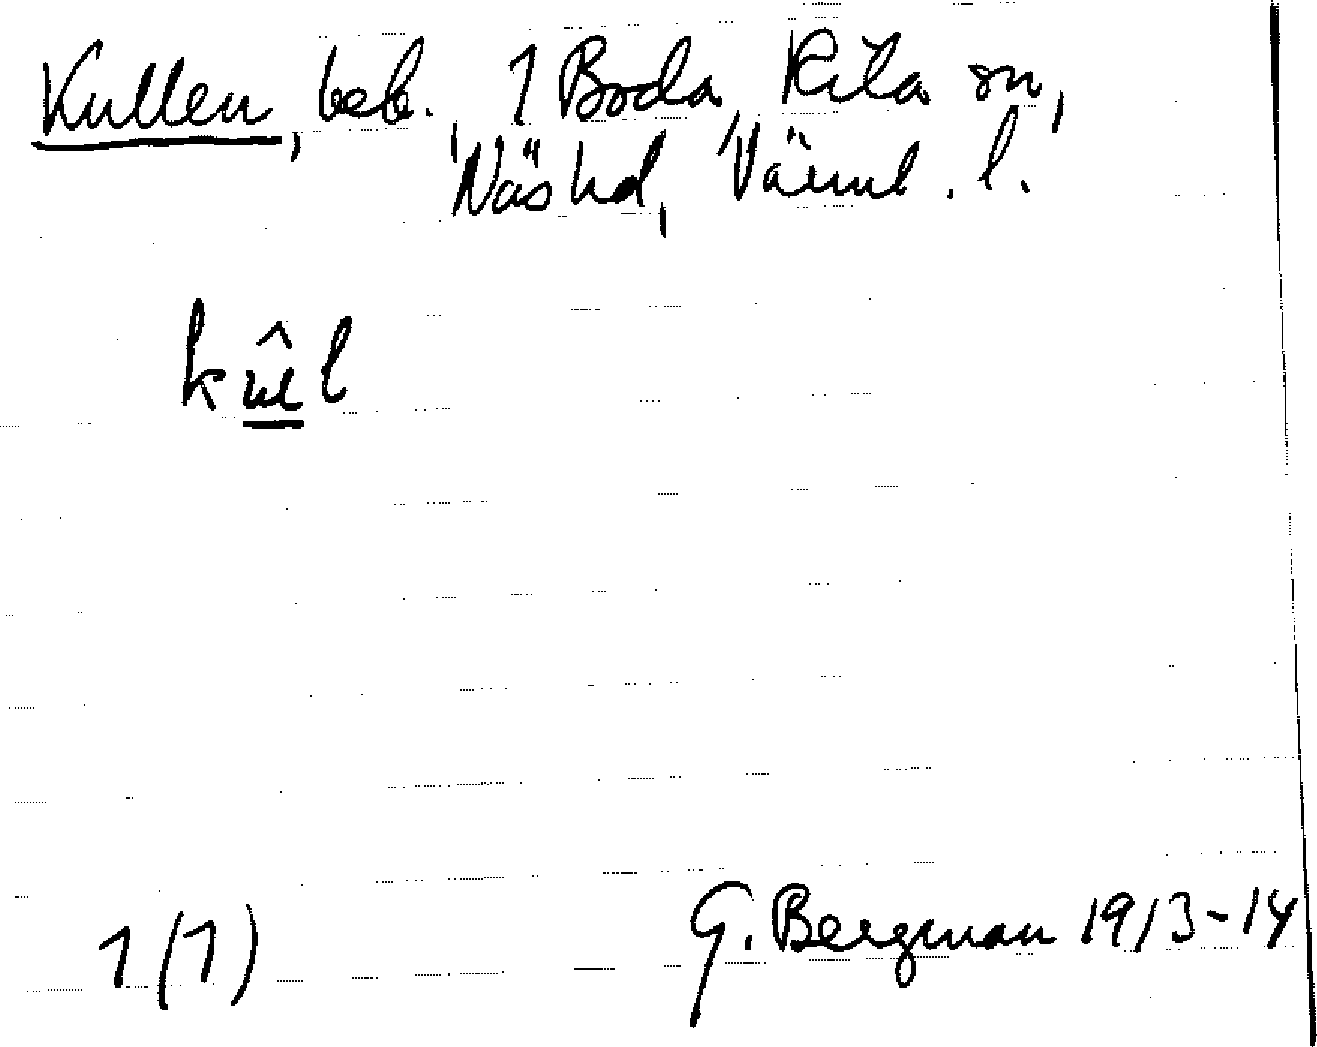 Kullen, beb., 1 Boda, Kila sn,
Näs hd, Värml. l.
kûl
1 (1)
G. Bergman 1913-14